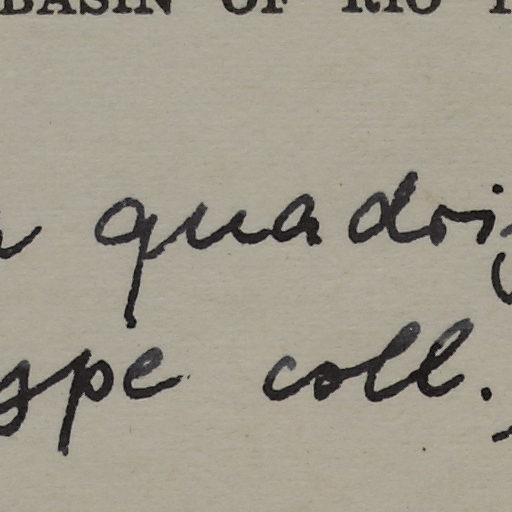 BASIN OF RIO
quadri
ype coll.